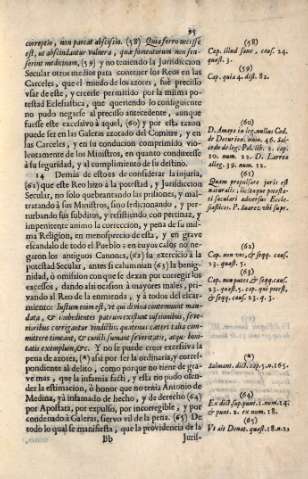 95
correptio, non pareat abscissio. (58) Quia ferro necesse
est, ut abscindantur vulnera, quæ fomentorum non sen-
serint medicinam, (59) y no teniendo la Jurisdiccion
Secular otros medios para contener los Reos en las
Carceles, que el miedo de los azotes, fuè preciso
vsar de este, y crecerse permitido por la misma po-
testad Eclesiastica, que queriendo lo consiguiente
no pudo negarse al precito antecedente, aunque
fuesse este excessivo à aquel, (60) y por esta razon
puede ser en las Galeras azotado del Comitre, y en
las Carceles, y en su conducion comprimido vio-
lentamente de los Ministros, en quanto conduzesse
à su seguridad, y al cumplimiento de su destino.
14 Demàs de estos de considerar la injuria,
(61) que este Reo hizo à la potestad, y Jurisdiccion
Secular, no solo quebrantando las prisiones, y mal-
tratando à sus Ministros, sino sediccionando, y per-
turbando sus subditos, y resistiendo con pertinaz, y
impenitente animo la correccion, y pena de su mis-
ma Religion, en menosprecio de esta, y en grave
escandalo de todo el Pueblo: en cuyos casos no ne-
garon los antiguos Canones, (62) su exercicio à la
potestad Secular, antes si culminan (63) la benigni-
dad, ò omission conque se dexan por corregir los
excessos, dando assi ocasion à mayores males, pri-
vando al Reo de la enmienda, y à todos del escar-
miento: Iustum enim est, vt qui divina contemnunt man-
data, & inobedientes paternis existunt iussionibus, seve-
rioribus corrigantur vindictis, quatenus cæteri talia com-
mittere timeant, & cunctis sumant severitate, atque bo-
nitatis exemplum, &c. Y no se puede creer excessiva la
pena de azotes, (*) assi por ser la ordinaria, y corres-
pondiente al delito, como porque no tiene de gra-
ve mas, que la infamia facti, y esta no pudo ofen-
der la estimacion, ò honor que no tenia Antonio de
Medina, ya infamado de hecho, y de derecho (64)
por Apostata, por expulso, por incorregible, y por
condenado à Galeras, siervo vil de la pena. (65) De
todo lo qual se manifiesta, que la providencia de la
Bb Juris-
(58)
Cap. illud sane, caus. 24.
quæst. 3.
(59)
Cap. quia 4. dist. 82.
(60)
D. Amaya in leg. nullus Cod.
de Decurion. num. 46. Sal-
cedo de leg. Pol. lib. 2. cap.
20. num. 22. D. Larrea
alleg. 39. num. 22.
(61)
Quam propulsare juris est
naturalis, licitaque potesta-
ti seculari adversus Eccle-
siasticos. P. Suarez vbi supr.
(62)
Cap. non vos, & sequ. caus.
23. quæst. 5.
(63)
Cap. non putes, & sequ. caus.
23. quæst. 5. cap. qui potest,
& sequ. caus. 23. q. 3.
(*)
Salmant. dict. cap. 5. n. 165.
(64)
Ex dict. sup. punt. 1. num. 14.
& punt. 2. ex num. 18.
(65)
Vt ait Donat. quæst. 18. n. 21